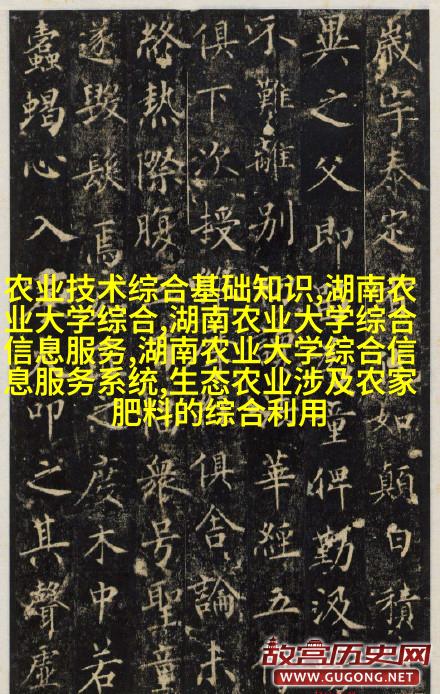 歲宇泰定如顛白積
異之父即童俾勤汲
不難離別華經五
俱下次授俱舍論未
終熱際腹衆号聖童
遂毀髮焉之度木中若
蠹蝎心入印之其聲虛
农业技术综合基础知识,湖南农
业大学综合,湖南农业大学综合
信息服务,湖南农业大学综合信
息服务系统,生态农业涉及农家
肥料的综合利用
故宫历史网
WWW.GUGONG.NET